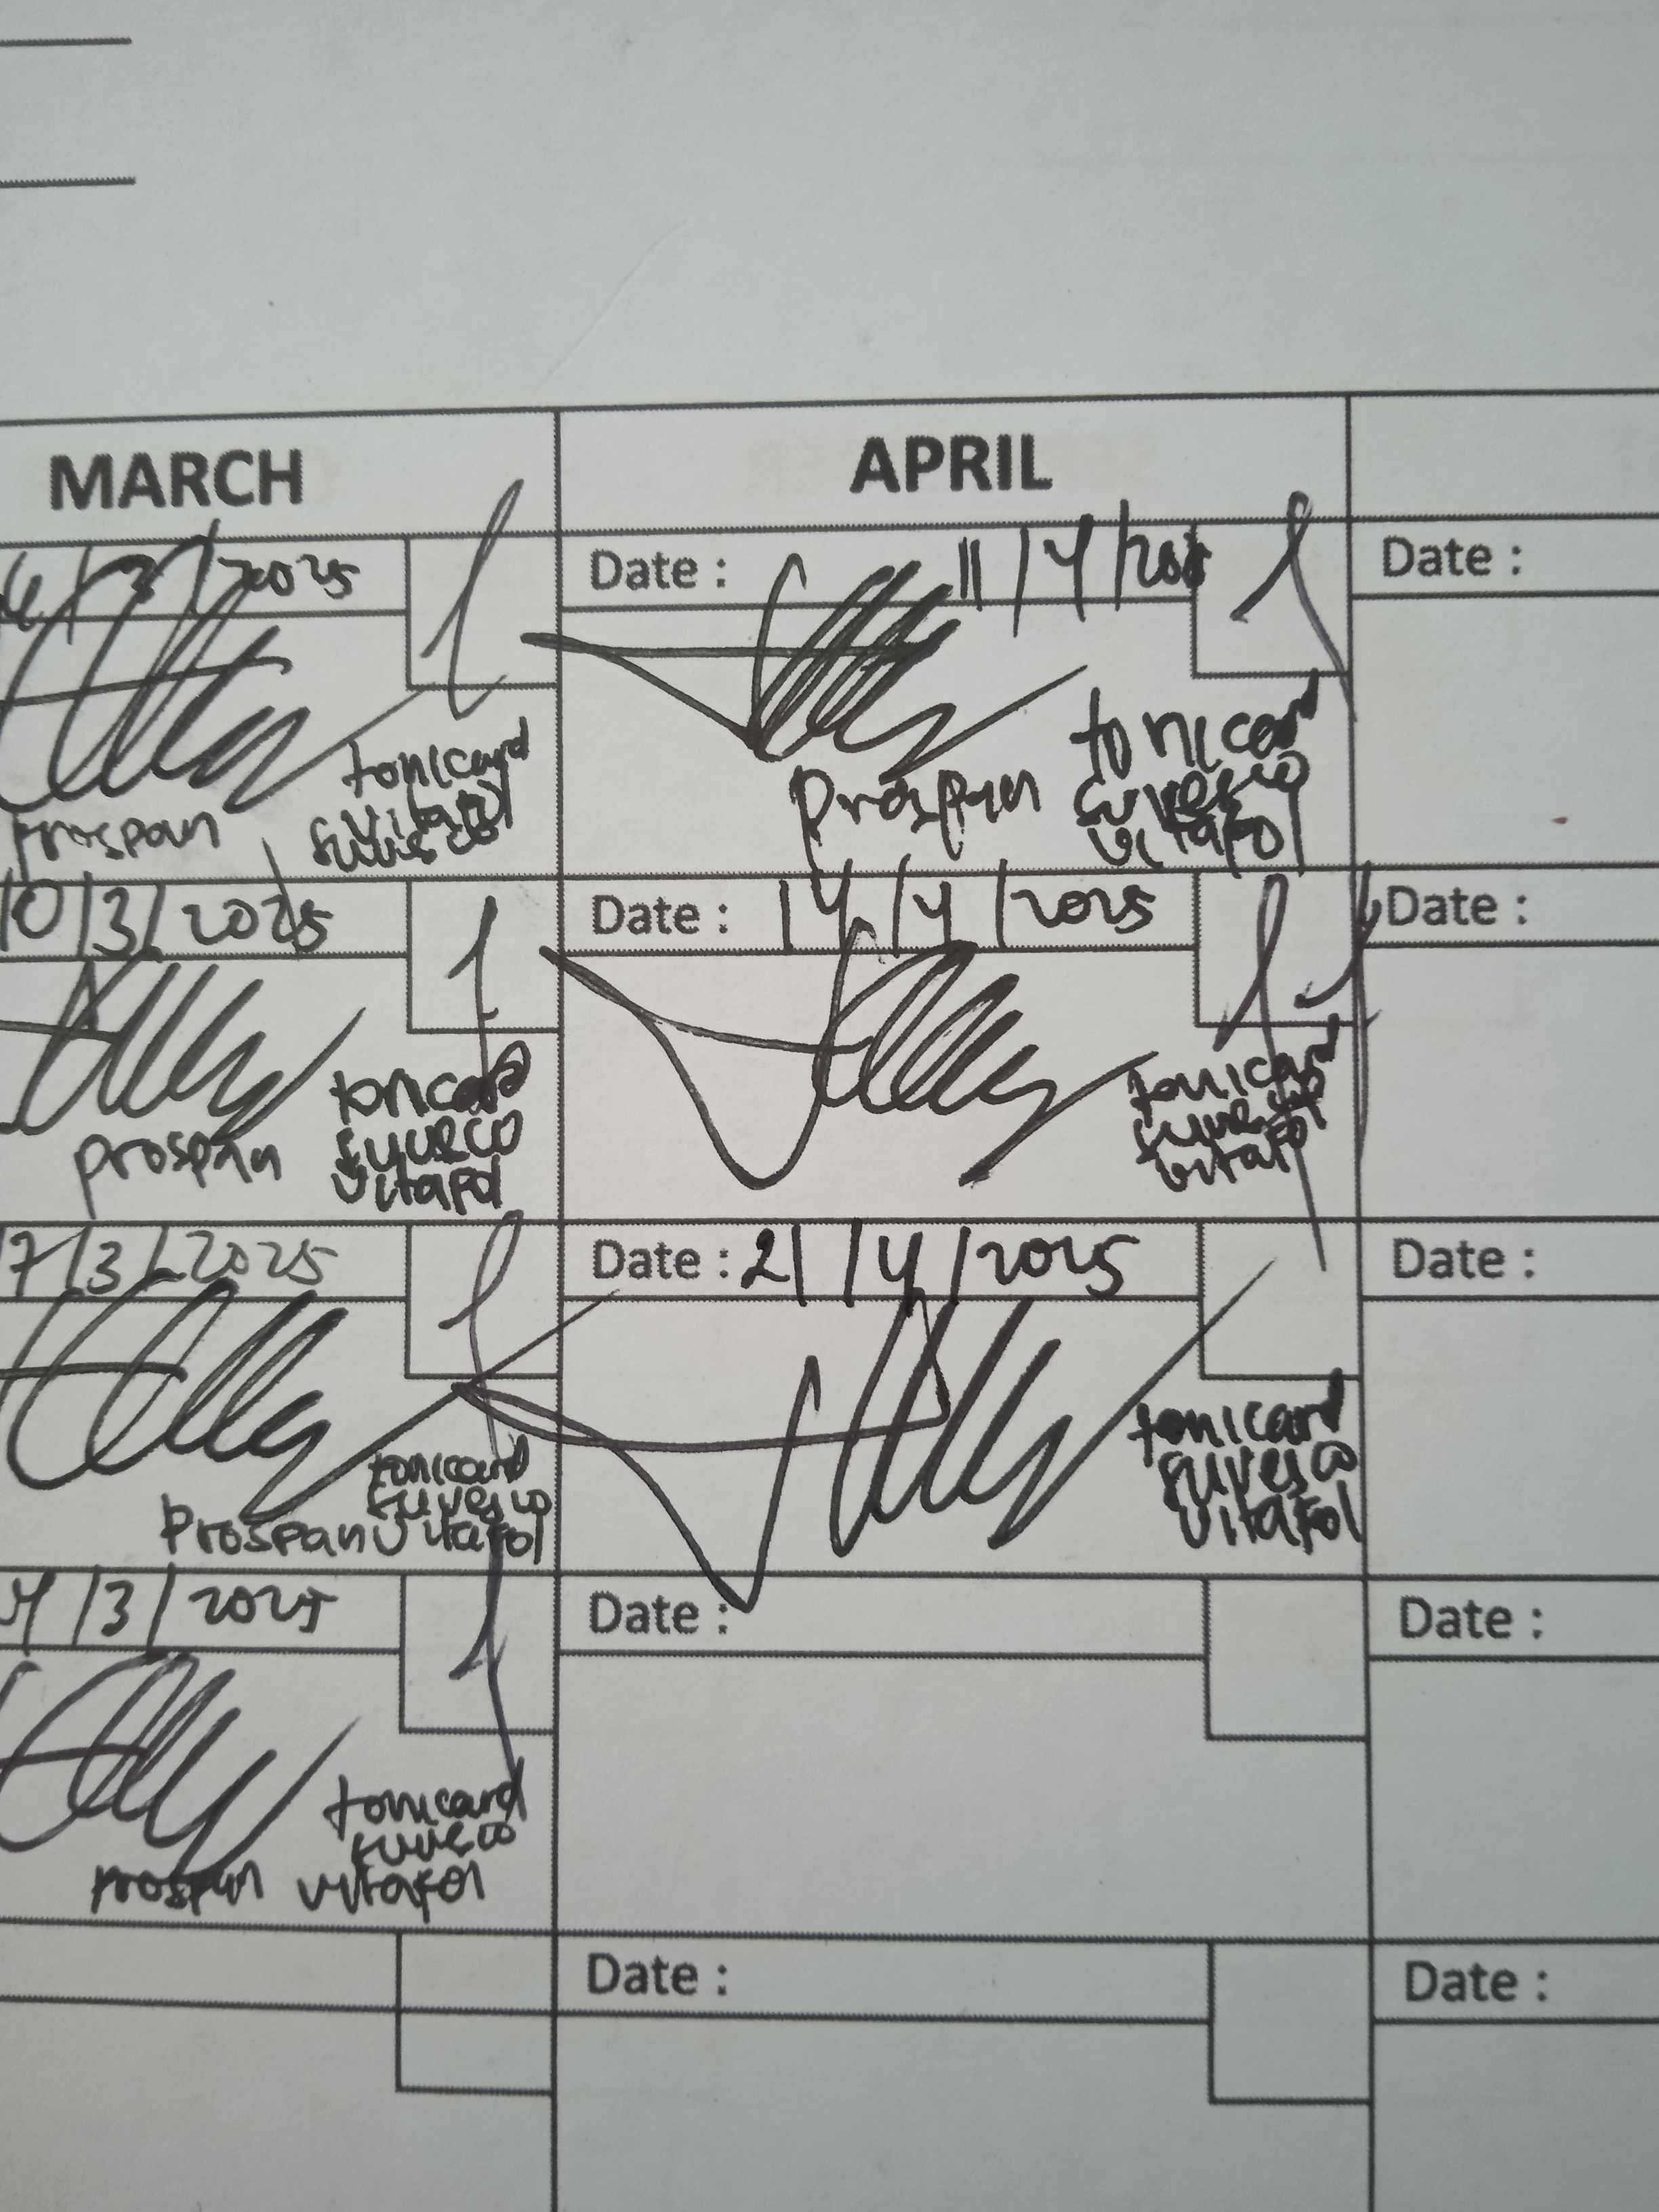 MARCH
APRIL
/3/2025
Date : 11/4/202
Date :
prospan
tonicard
vitafol
suvesco
Prospan
tonicard
suvesco
vitafol
10/3/2025
Date : 14/4/2025
Date :
prospan
tonicard
suvesco
vitafol
tonicard
suvesco
vitafol
7/3/2025
Date : 21/4/2025
Date :
Prospan
tonicard
suvesco
vitafol
tonicard
suvesco
vitafol
4/3/2025
Date :
Date :
prospan
tonicard
suvesco
vitafol
Date :
Date :